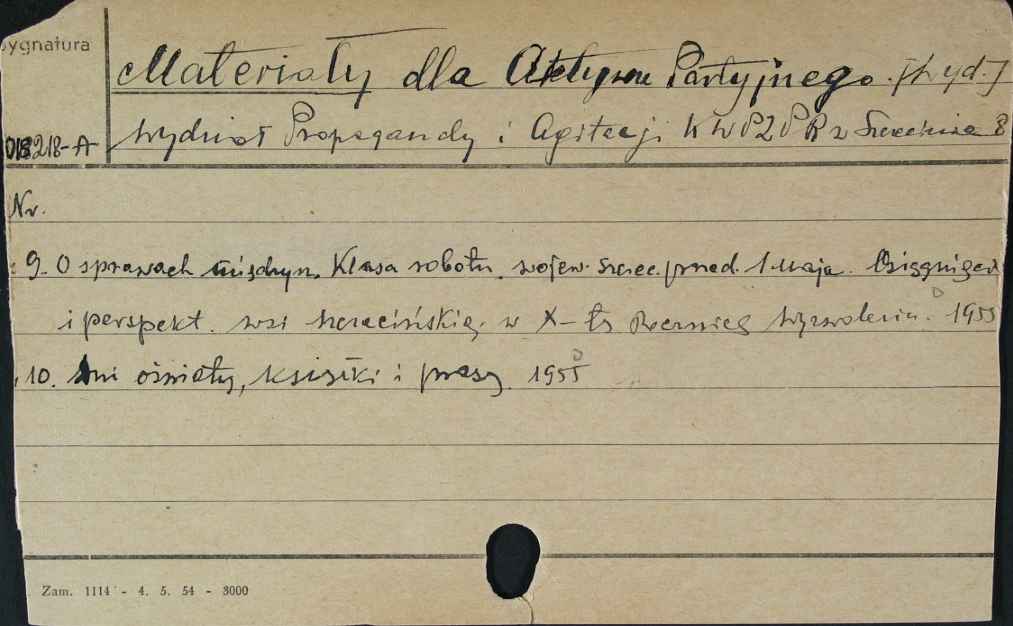 Sygnatura
Materiały dla Aktywu Partyjnego. [Wyd.]
018218-A Wydział Propagandy i Agitacji KW PZPR w Szczecinie
Nr.
9. O sprawach międzyn. Klasa robotn. wojew. szczec. przed 1 Maja. Osiągnięcia
i perspekt. wsi szczecińskiej w X-tą Rocznicę Wyzwolenia. 1955
10. Dni oświaty, książki i prasy. 1955
Zam. 1114 - 4. 5. 54 - 3000